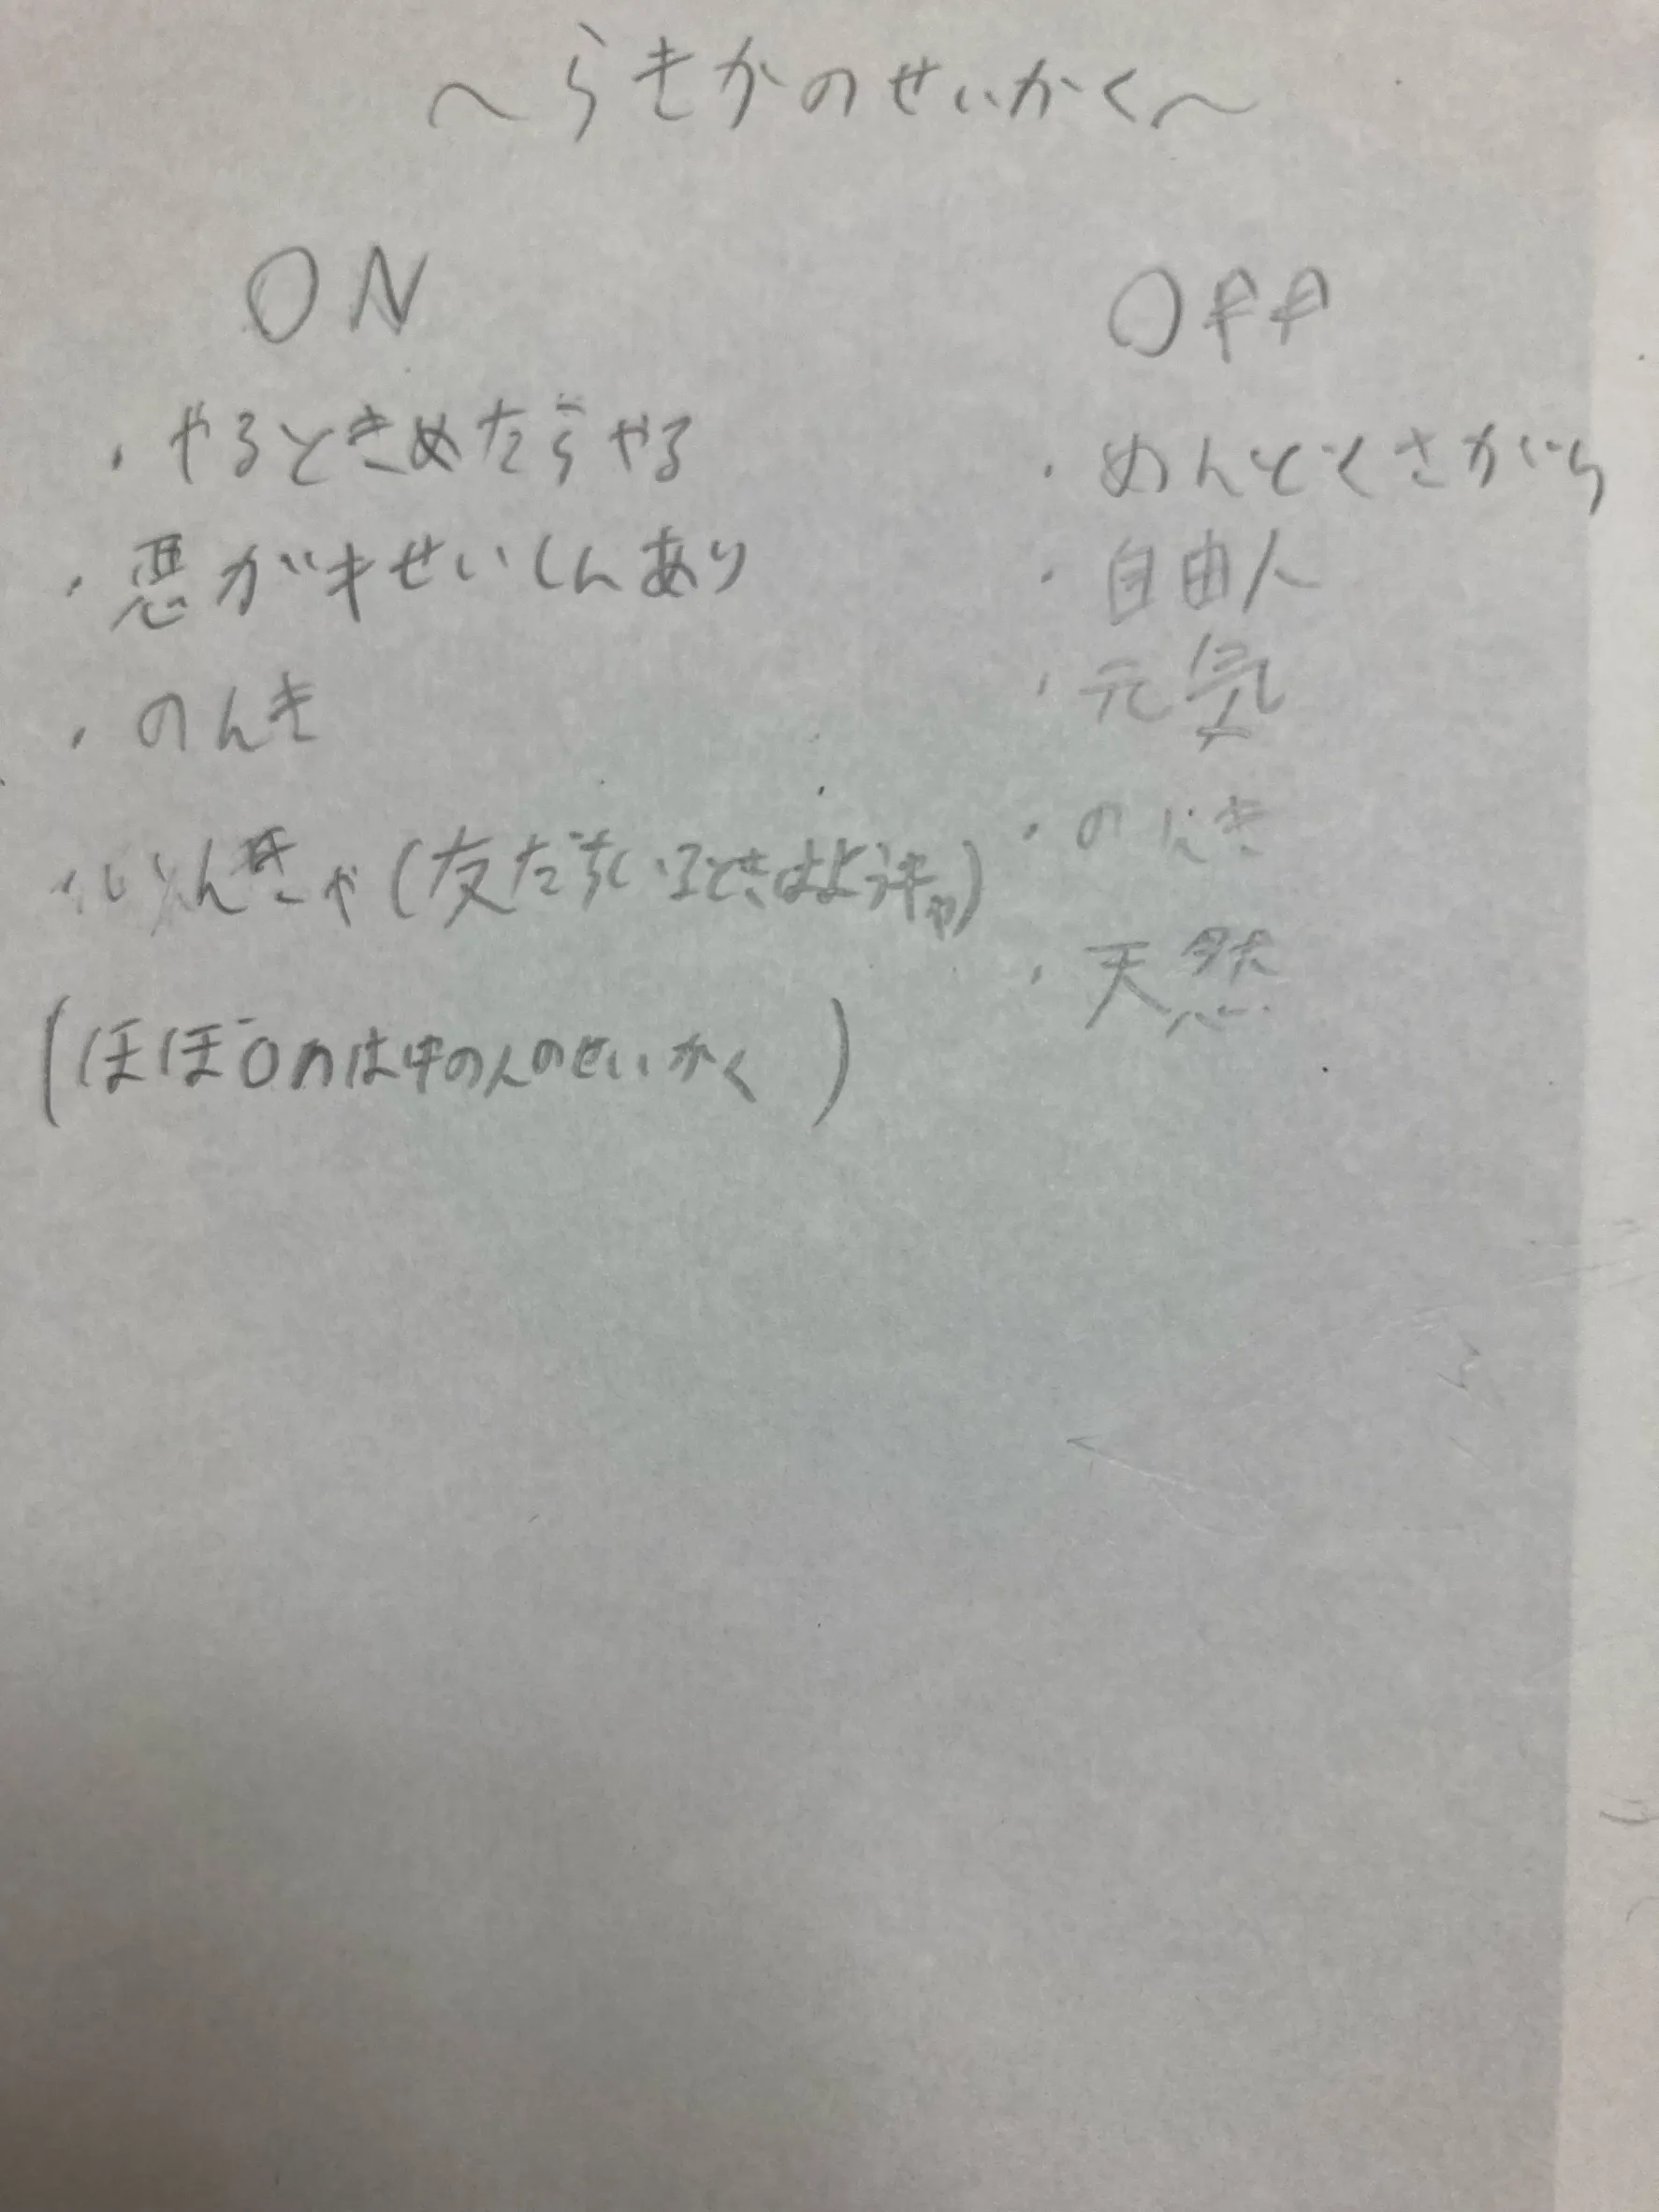 ~らきかのせいかく~
ON
・やるときめたらやる
・悪がキせいしんあり
・のんき
・いんきゃ(友だちいるときはようキャ)
(ほぼONは中の人のせいかく)
OFF
・めんどくさがり
・自由人
・元気
・のんき
・天然